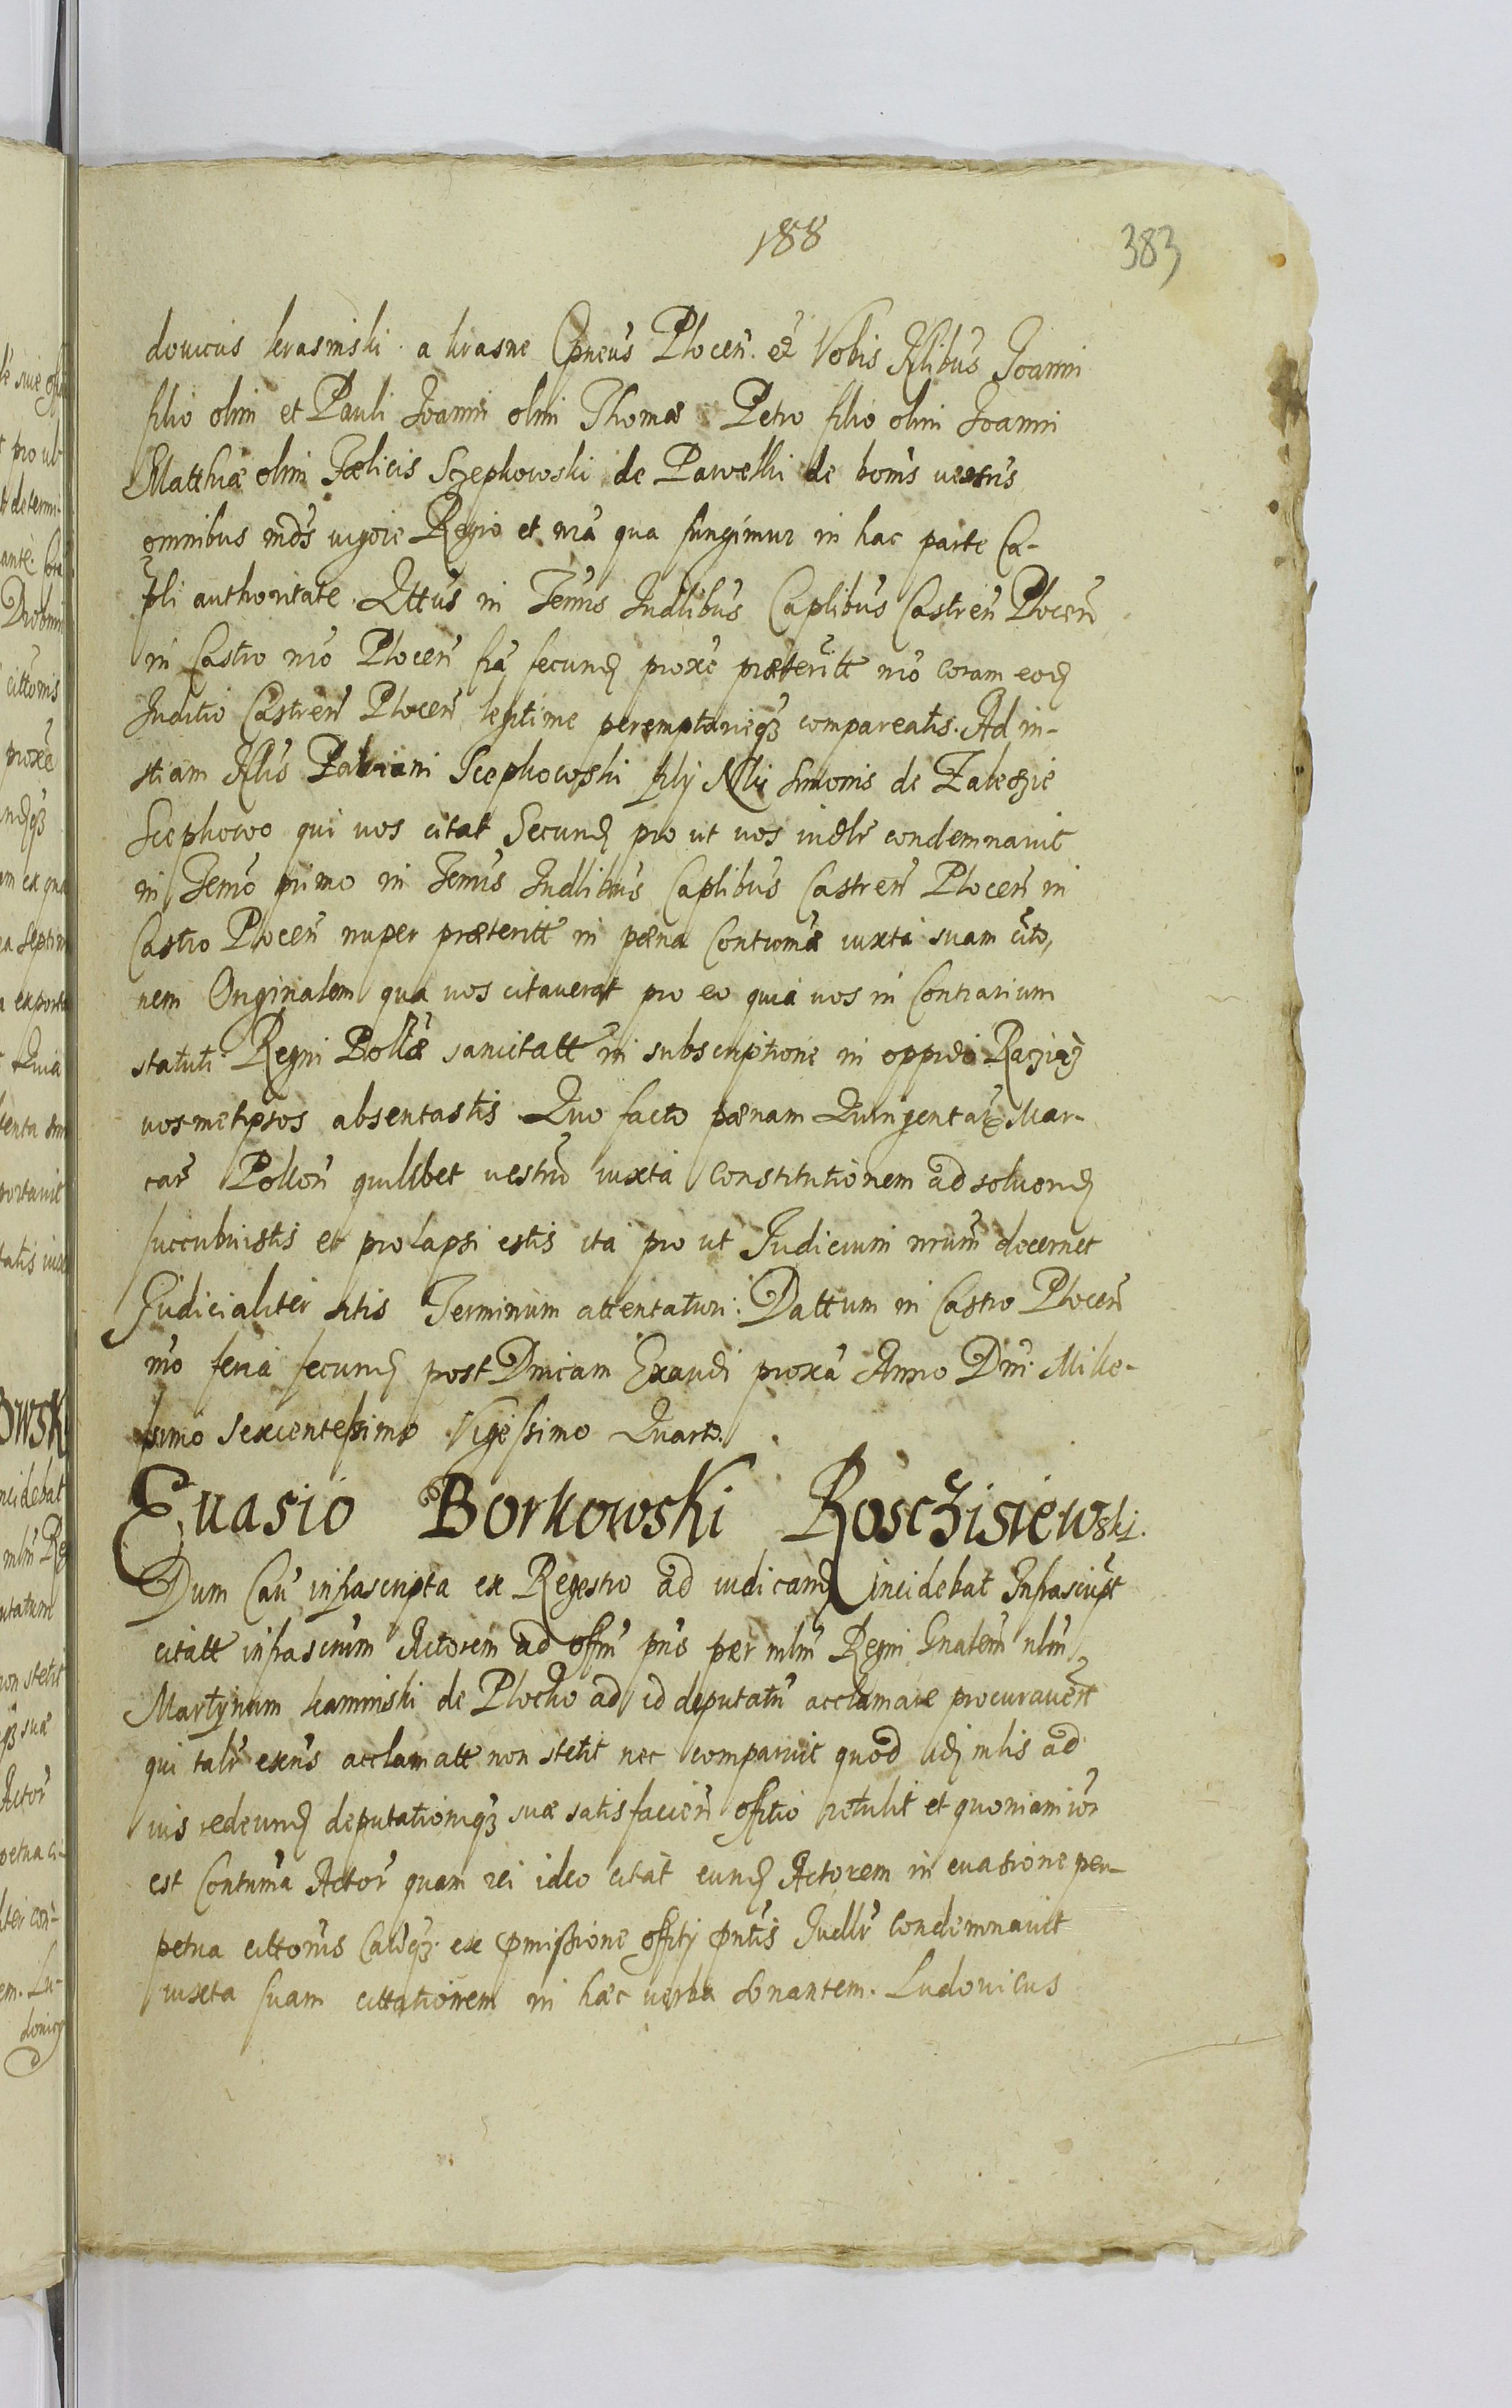 188
383
douicus krasinski a krasne Cpneus Plocen̄. et Vobis Nlibus Joanni
filio olim et Pauli Joanni olim Thomæ Petro filio olim Joanni
Matthiæ olim Fœlicis Szepkowski de Pawelki de bonis uestris
omnibus mdis uigore Regio et nrā qua fungimur in hac parte Ca-
pli authoritate. Qttus in Termis Judlibus Caplibus Castren̄ Plocen̄
in Castro nro Plocen̄ fra secund proxe præteritt nro coram eod
Juditio Castren̄ Plocen̄ legitime peremptorieqʒ compareatis. Ad in-
stiam Nlis Fabiani Scepkowski filij Nlis Simonis de Zalesie
Scepkowo qui uos citat Secund pro ut uos iudlr condemnauit
in Termo primo in Termis Judlibus Caplibus Castren̄ Plocen̄ in
Castro Plocen̄ nuper præteritt in pæna Contumā iuxta suam citto,
nem Originalem qua uos citauerat pro eo quia uos in Contrarium
statuti Regni Pollæ sancitatt in subscriptione in oppido Raziąz
uosmetipsos absentastis. Quo facto pænam Quingentar Mar-
car Pollon̄ quilibet uestrū iuxta Constitutionem ad soluend
succubuistis et prolapsi estis ita pro ut Judicium nrum decernet
Judicialiter sitis Terminum attentaturi. Dattum in Castro Plocen̄
nro feria secund post Dnicam Exaudi proxa Anno Dni. Mille-
simo Sexcentessimo Vigessimo Quarto.
Euasio Borkowski Roscziszewski.
Dum Cau infrascripta ex Regestro ad iudicand incidebat Infrascript
citatt infrascrum Actorem ad offm pns per mlm Regni Gnalem nlm
Martynum kaminski de Plocko ad id deputatu acclamare procurauert
qui talr exns acclamatt non stetit nec comparuit quod idj mlis ad
ius redeund deputationiqʒ suæ satisfacien̄ offitio retulit et quoniam ior
est Contuma Actor quam rei ideo citat eund Actorem in euasione per-
petua cittonis Cauqʒ ex pmissione offity pntis Judlr Condemnauit
iuxta suam cittationem in hæc uerba sonantem. Ludouicus